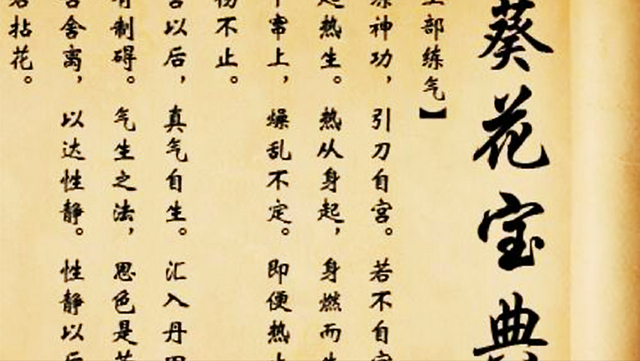 葵花宝典
部练气】
神功，引刀自宫。若不自宫
热生。热从身起，身燃而生
上，燥乱不定。即便热止
不止。
以后，真气自生。汇入丹田
制碍。气生之法，思色是苦
舍离，以达性静。性静以后
拈花。